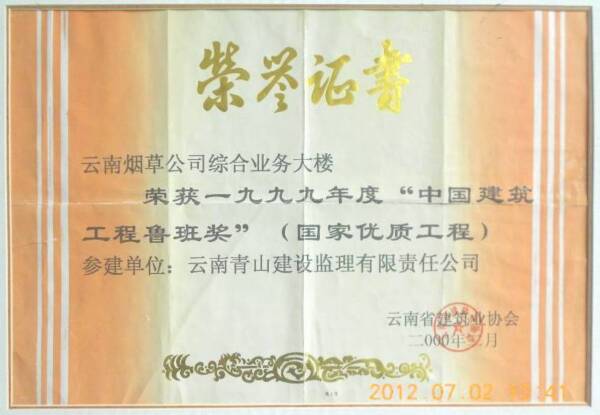 荣誉证书
云南烟草公司综合业务大楼
荣获一九九九年度“中国建筑
工程鲁班奖”（国家优质工程）
参建单位：云南青山建设监理有限责任公司
云南省建筑业协会
二000年二月
2012.07.02